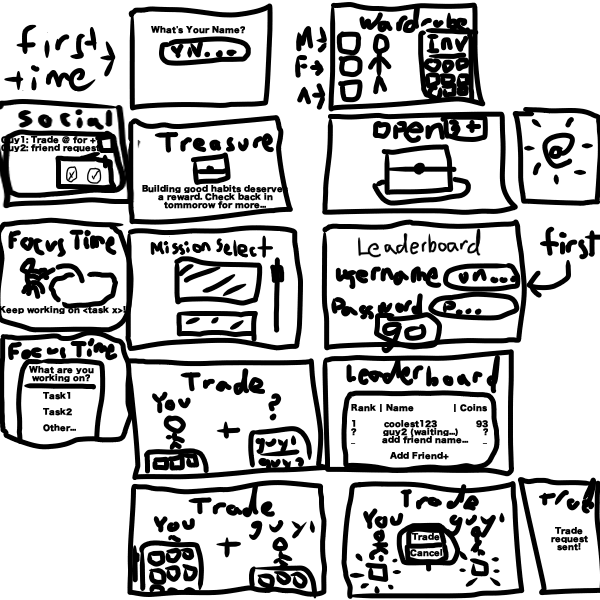 first
time
What's Your Name?
un...
Wardrobe
M
F
A
Inv
Social
Guy1: Trade @ for +
Guy2: friend request
Treasure
Building good habits deserve
a reward. Check back in
tommorow for more...
open
3+
Focus Time
Keep working on <task x>!
Mission Select
Leaderboard
username un...
Password P...
go
first
Focus Time
What are you
working on?
Task1
Task2
Other...
Trade
You ?
+
guy1
guy2
Leaderboard
Rank | Name | Coins
1 coolest123 93
? guy2 (waiting...) ?
_ add friend name... _
Add Friend+
Trade
You guy1
+
Trade
You guy1
Trade
Cancel
Trade
Trade
request
sent!